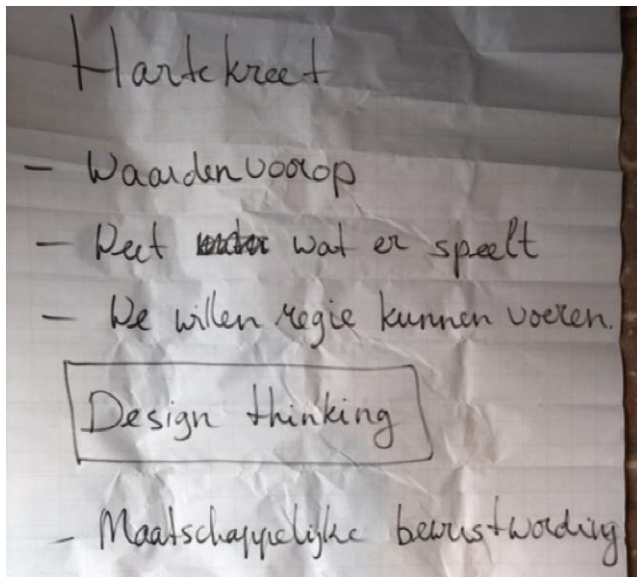 Hartekreet
- Waarden voorop
- Weet wat er speelt
- We willen regie kunnen voeren.
Design thinking
- Maatschappelijke bewustwording